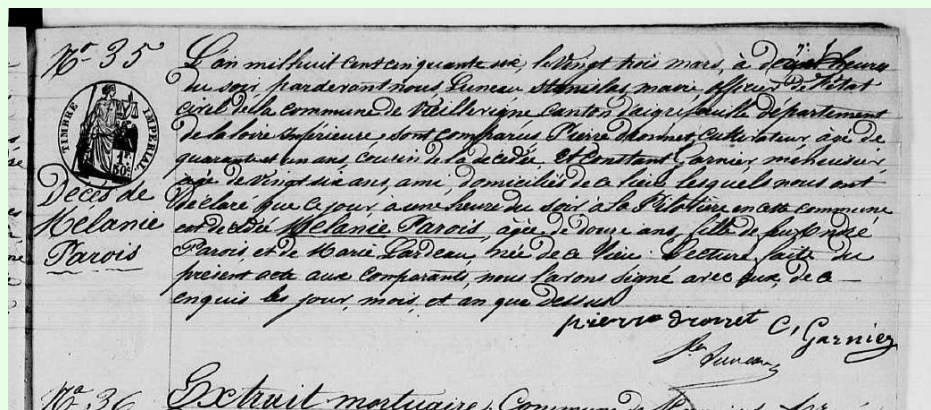 No 35
TIMBRE IMPERIAL
1F.
50c
Décès de
Mélanie
Parois
L'an mil huit cent cinquante six, le vingt trois mars, à deux heures
du soir pardevant nous Luneau Stanislas, maire officier de l'état
civil de la commune de Vieillevigne canton d'aigrefeuille département
de la loire Inférieure, sont comparus Pierre Drouet, cultivateur, âgé de
quarante et un ans, cousin de la décédée, et Constant Garnier, menuisier,
âgé de vingt six ans, ami, domiciliés de ce lieu, lesquels nous ont
déclaré que ce jour, à une heure du soir à la Pilotière en cette commune
est décédée Mélanie Parois, âgée de douze ans, fille de feu André
Parois, et de Marie Lardeau, née de ce lieu. Lecture faite du
présent acte aux comparants, nous l'avons signé avec eux, de ce
enquis les jour, mois, et an que dessus
pierre Drouet C, Garnier
Luneau
No 36
Extrait mortuaire, Commune de